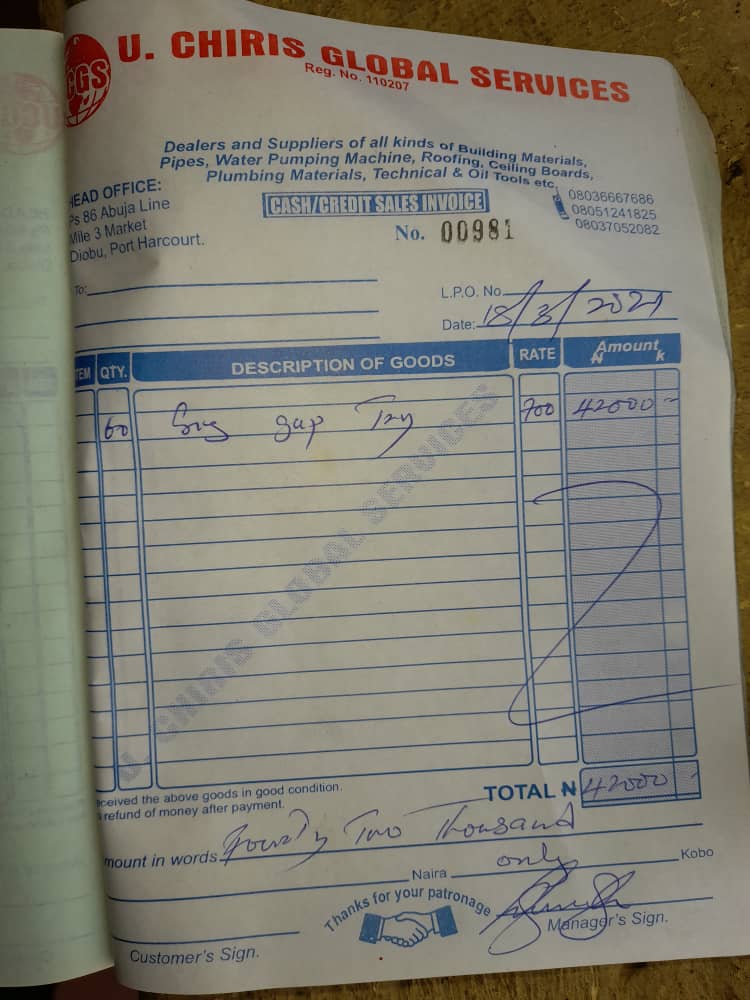 CGS
U. CHIRIS GLOBAL SERVICES
Reg. No. 110207
Dealers and Suppliers of all kinds of Building Materials,
Pipes, Water Pumping Machine, Roofing, Ceiling Boards,
Plumbing Materials, Technical & Oil Tools etc.
HEAD OFFICE:
Ps 86 Abuja Line
Mile 3 Market
Diobu, Port Harcourt.
CASH/CREDIT SALES INVOICE
No. 00981
08036667686
08051241825
08037052082
To:
L.P.O. No.
Date: 18/3/2021
TEM QTY. DESCRIPTION OF GOODS RATE Amount
₦ k
60 gap 700 42000 =
U. CHIRIS GLOBAL SERVICES
eceived the above goods in good condition.
refund of money after payment.
TOTAL ₦ 42000 -
mount in words Fourty Two Thousand
Naira only Kobo
Thanks for your patronage
Customer's Sign.
Manager's Sign.